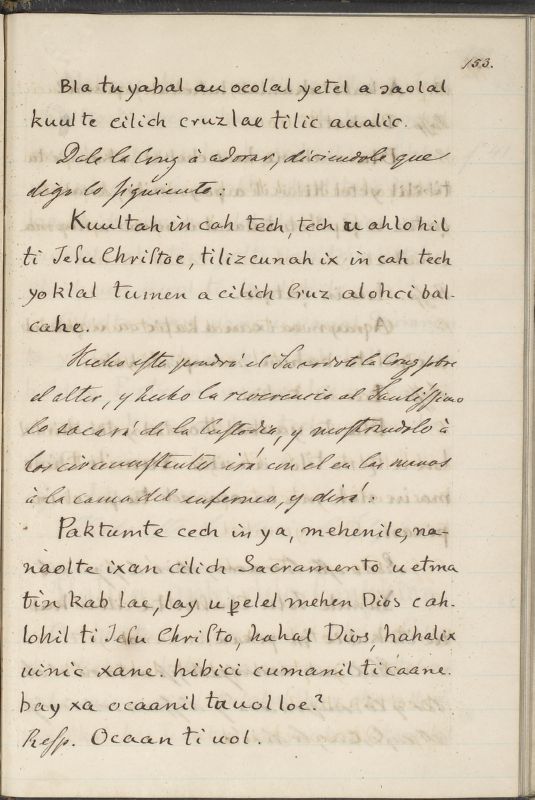 153.
Bla tu yabal au ocolal yetel a saolal
kuulte cilich cruz lae tilic aualic.
Dale la Cruz à adorar, diciendole que
diga lo siguiente:
Kuultah in cah tech, tech u ahlohil
ti Jesu Christoe, tilizcunah ix in cah tech
yoklal tumen a cilich Cruz alohci bal-
cahe.
Hecho esto pondrá el Sacerdote la Cruz sobre
el altar, y hecho la reverencia al Santissimo
lo sacará de la Custodia, y mostrandolo à
los circunstantes irá con el en las manos
à la cama del enfermo, y dirá:
Paktamte cech in ya, mehenile, na-
naolte ixan cilich Sacramento u etma
tin kab lae, lay u pelel mehen Dios cah-
lohil ti Jesu Christo, hahal Dios, hahal ix
uinic xane. hibici cumanil ti caane.
bay xa ocaanil ta uol loe?
Resp. Ocaan ti uol.